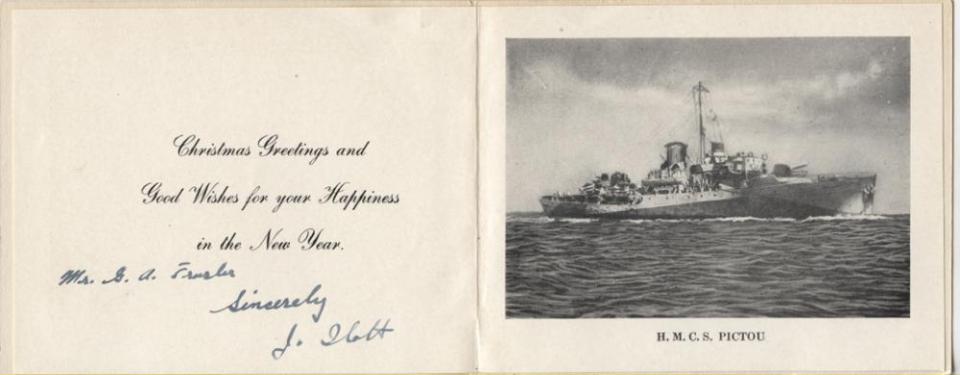 Christmas Greetings and
Good Wishes for your Happiness
in the New Year.
Mr. G. A.
Sincerely
J.
H. M. C. S. PICTOU